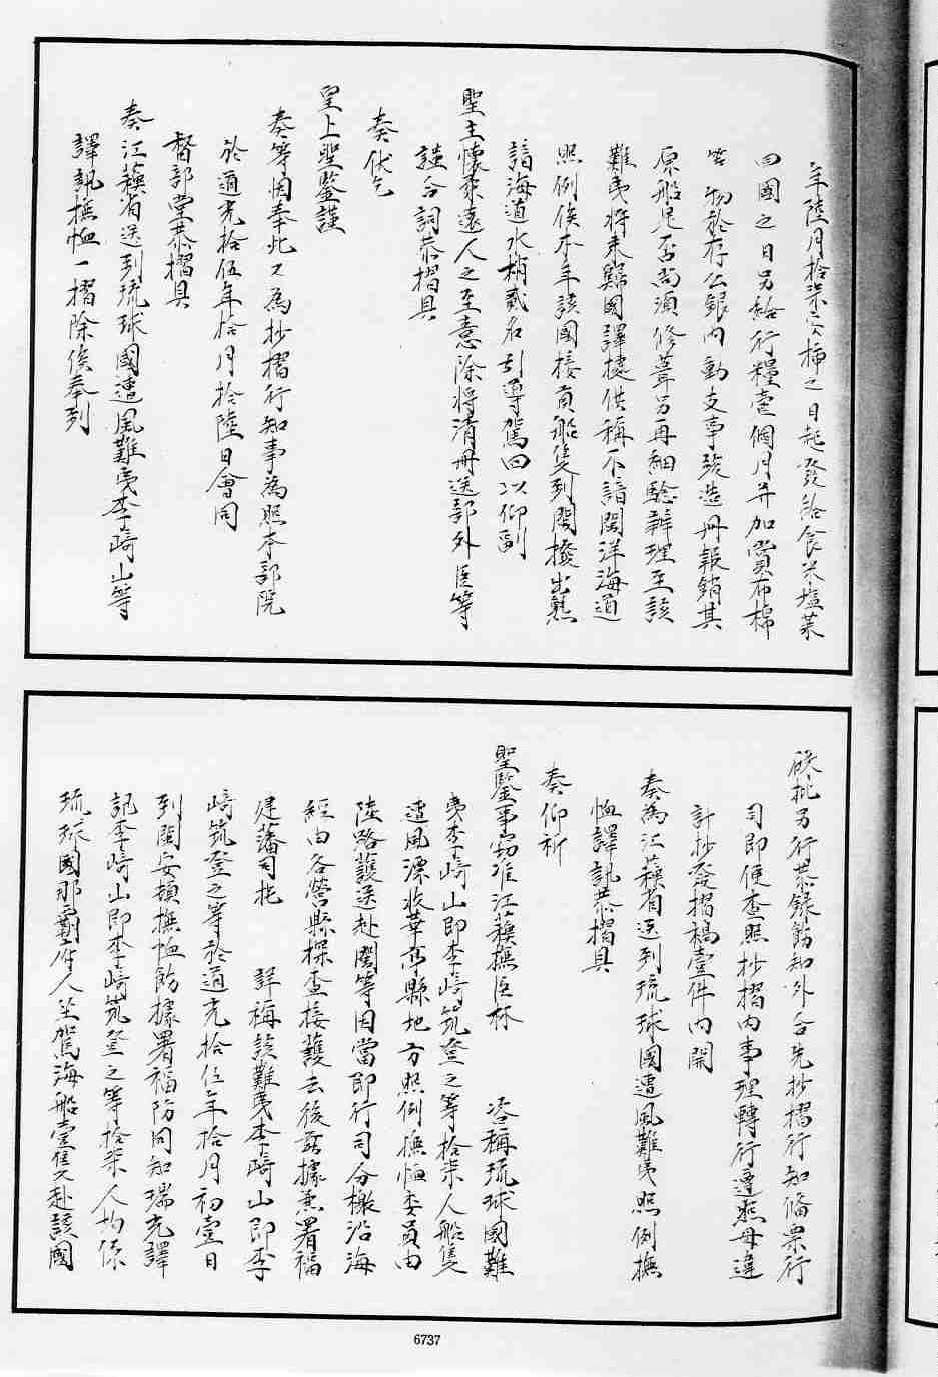 年陸月拾柒安插之日起發給食米塩菜
回國之日另給行糧壹個月并加賞布棉
等物於存公銀內動支事竣造冊報銷其
原船是否尚須修葺另再細驗辦理至該
難夷將來歸國譯據供稱不諳閩洋海道
照例俟本年該國接貢船隻到閩撥出熟
諳海道水梢貳名引導駕回以仰副
聖主懷柔遠人之至意除將清冊送部外臣等
謹合詞恭摺具
奏伏乞
皇上聖鑒謹
奏等因奉此又為抄摺行知事為照本部院
於道光拾伍年拾月拾陸日會同
督部堂恭摺具
奏江蘓省送到琉球國遭風難夷李崎山等
譯訊撫恤一摺除俟奉到
硃批另行恭錄飭知外合先抄摺行知俻案行
司即便查照抄摺內事理轉行遵照毋違
計抄發摺稿壹件內開
奏為江蘓省送到琉球國遭風難夷照例撫
恤譯訊恭摺具
奏仰祈
聖鑒事竊准江蘓撫臣林 咨稱琉球國難
夷李崎山即李崎筑登之等拾柒人船隻
遭風漂收華亭縣地方照例撫恤委員由
陸路護送赴閩等因當即行司分檄沿海
經由各營縣探查接護去後茲據兼署福
建藩司 詳稱該難夷李崎山即李
崎筑登之等於道光拾伍年拾月初壹日
到閩安頓撫恤飭據署福防同知瑞光譯
訊李崎山即李崎筑登之等拾柒人均係
琉球國那霸府人坐駕海船壹隻赴該國
6737